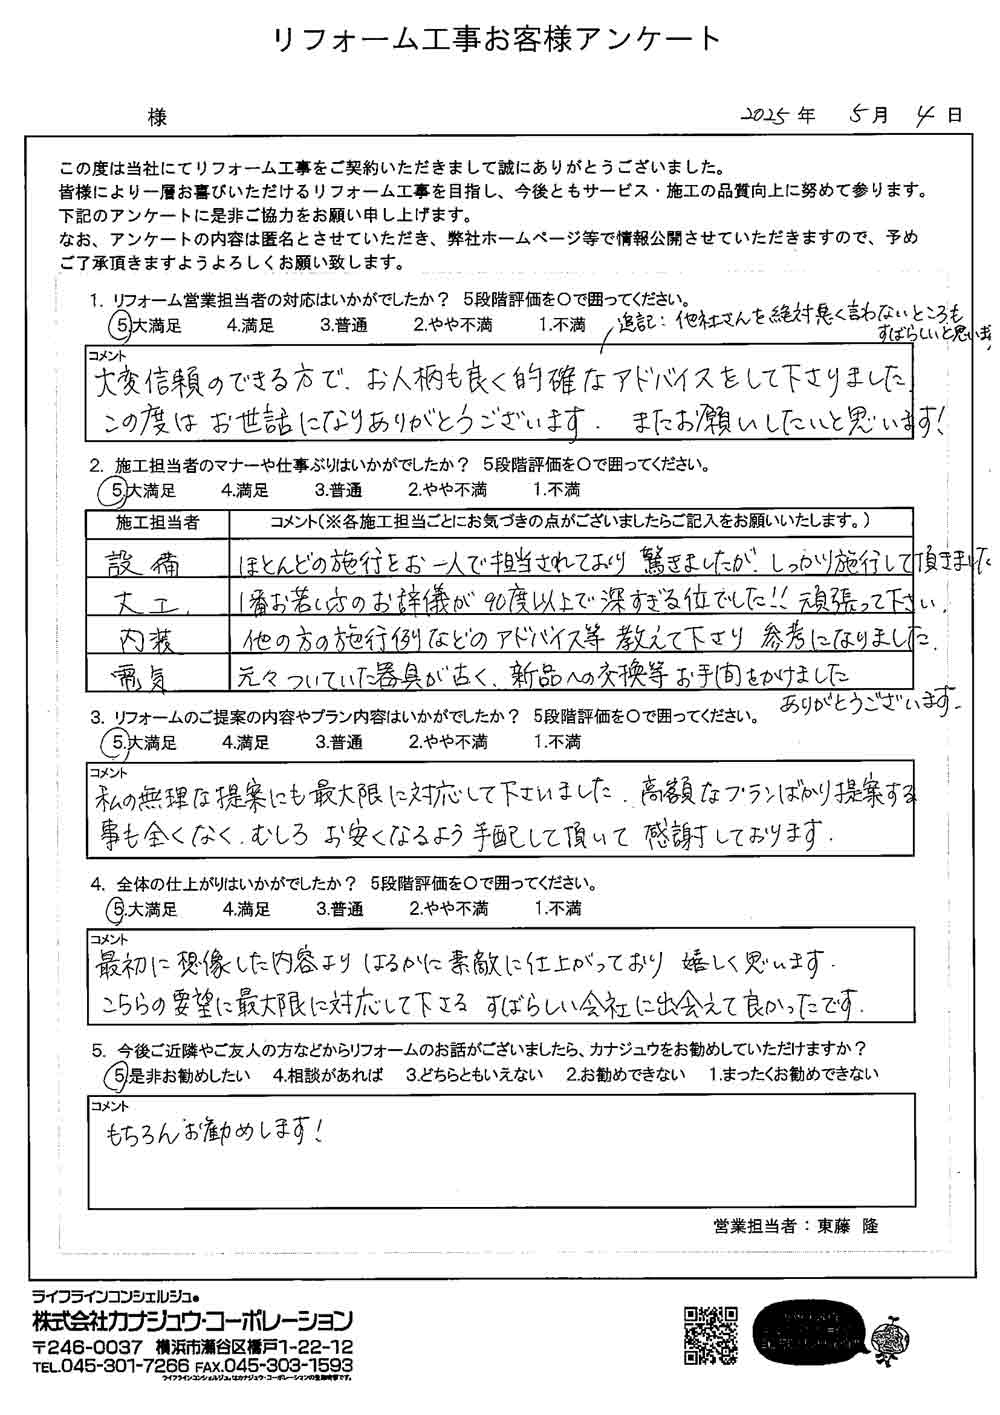 リフォーム工事お客様アンケート
様 2025年 5月 4日
この度は当社にてリフォーム工事をご契約いただきまして誠にありがとうございました。
皆様により一層お喜びいただけるリフォーム工事を目指し、今後ともサービス・施工の品質向上に努めて参ります。
下記のアンケートに是非ご協力をお願い申し上げます。
なお、アンケートの内容は匿名とさせていただき、弊社ホームページ等で情報公開させていただきますので、予め
ご了承頂きますようよろしくお願い致します。
1. リフォーム営業担当者の対応はいかがでしたか? 5段階評価を○で囲ってください。
5.大満足 4.満足 3.普通 2.やや不満 1.不満
追記：他社さんを絶対悪く言わないところも
すばらしいと思います
コメント
大変信頼のできる方で、お人柄も良く的確なアドバイスをして下さりました
この度はお世話になりありがとうございます. またお願いしたいと思います!
2. 施工担当者のマナーや仕事ぶりはいかがでしたか? 5段階評価を○で囲ってください。
5.大満足 4.満足 3.普通 2.やや不満 1.不満
施工担当者 コメント(※各施工担当ごとにお気づきの点がございましたらご記入をお願いいたします。)
設備 ほとんどの施行をお一人で担当されており 驚きましたが、しっかり施行して頂きました
大工 1番お若い方のお辞儀が90度以上で深すぎる位でした!! 頑張って下さい.
内装 他の方の施行例などのアドバイス等 教えて下さり 参考になりました.
電気 元々ついていた器具が古く、新品への交換等お手間をかけました
ありがとうございます.
3. リフォームのご提案の内容やプラン内容はいかがでしたか? 5段階評価を○で囲ってください。
5.大満足 4.満足 3.普通 2.やや不満 1.不満
コメント
私の無理な提案にも最大限に対応して下さいました. 高額なプランばかり提案する
事も全くなく、むしろ お安くなるよう手配して頂いて 感謝しております.
4. 全体の仕上がりはいかがでしたか? 5段階評価を○で囲ってください。
5.大満足 4.満足 3.普通 2.やや不満 1.不満
コメント
最初に想像した内容より はるかに素敵に仕上がっており 嬉しく思います.
こちらの要望に最大限に対応して下さる すばらしい会社に出会えて良かったです.
5. 今後ご近隣やご友人の方などからリフォームのお話がございましたら、カナジュウをお勧めしていただけますか?
5.是非お勧めしたい 4.相談があれば 3.どちらともいえない 2.お勧めできない 1.まったくお勧めできない
コメント
もちろんお勧めします!
営業担当者：東藤 隆
ライフラインコンシェルジュ。
株式会社カナジュウ・コーポレーション
〒246-0037 横浜市瀬谷区橋戸1-22-12
TEL.045-301-7266 FAX.045-303-1593
ライフラインコンシェルジュ。はカナジュウ・コーポレーションの登録商標です。